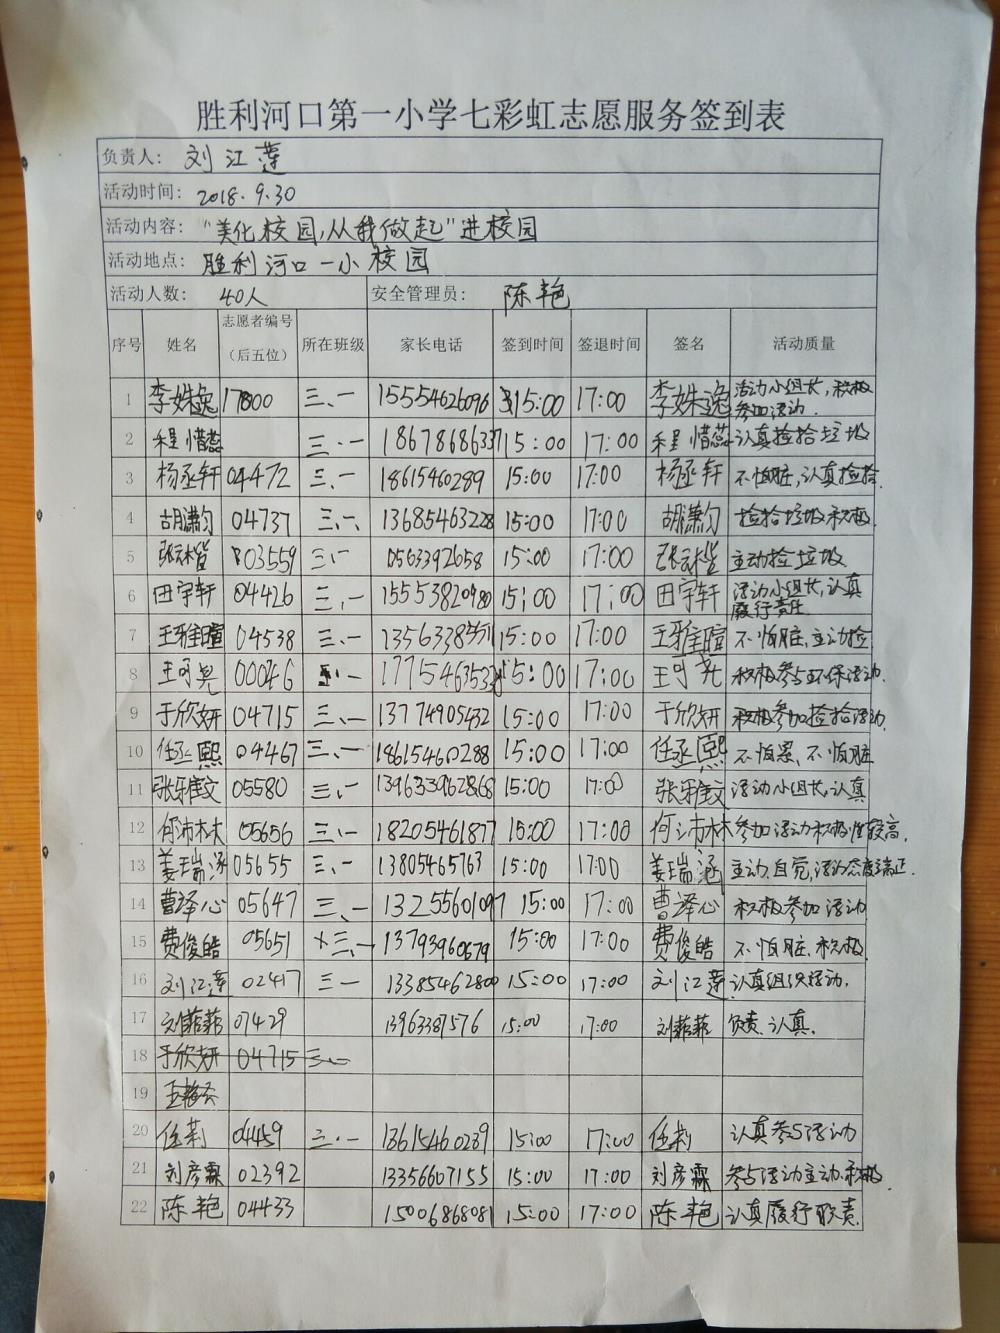 胜利河口第一小学七彩虹志愿服务签到表
负责人: 刘江莲
活动时间: 2018.9.30
活动内容: "美化校园,从我做起"进校园
活动地点: 胜利河口一小校园
活动人数: 40人 安全管理员: 陈艳
序号 姓名 志愿者编号(后五位) 所在班级 家长电话 签到时间 签退时间 签名 活动质量
1 李姝逸 17800 三.一 15554626096 15:00 17:00 李姝逸 活动小组长,积极参加活动.
2 程惜蕊 三.一 18678686337 15:00 17:00 程惜蕊 认真捡拾垃圾
3 杨丞轩 04472 三.一 18615460289 15:00 17:00 杨丞轩 不怕脏,认真捡拾.
4 胡潇匀 04737 三.一. 13685463228 15:00 17:00 胡潇匀 捡拾垃圾积极.
5 03559 三.一 0563392658 15:00 17:00 主动捡垃圾
6 田宇轩 04426 三.一 15553820980 15:00 17:00 田宇轩 活动小组长,认真履行责任
7 王雅暄 04538 三.一 15:00 17:00 王雅暄 不怕脏,主动捡
8 王可尧 00046 一 15:00 17:00 王可尧 积极参与环保活动.
9 于欣妍 04715 三.一 13774905432 15:00 17:00 于欣妍 积极参加捡拾活动.
10 任丞熙 04467 三.一 18615460288 15:00 17:00 任丞熙 不怕累,不怕脏
11 张雅文 05580 三.一 139633962868 15:00 17:00 张雅文 活动小组长,认真
12 何沛林 05656 三.一 18205461877 15:00 17:00 何沛林 参加活动积极性较高.
13 姜瑞涵 05655 三.一 13805465763 15:00 17:00 姜瑞涵 主动.自觉,活动态度端正.
14 曹泽心 05647 三.一 13255601097 15:00 17:00 曹泽心 积极参加活动
15 费俊皓 05651 三.一 13793960679 15:00 17:00 费俊皓 不怕脏.积极.
16 刘江莲 02417 三一 13385462800 15:00 17:00 刘江莲 认真组织活动.
17 刘菲菲 07429 13963387576 15:00 17:00 刘菲菲 负责.认真.
18 于欣妍 04715 三.一
19
20 任莉 04459 三.一 13615460239 15:00 17:00 任莉 认真参与活动
21 刘彦霖 02392 13356607155 15:00 17:00 刘彦霖 参与活动主动.积极.
22 陈艳 04433 15006868081 15:00 17:00 陈艳 认真履行职责.